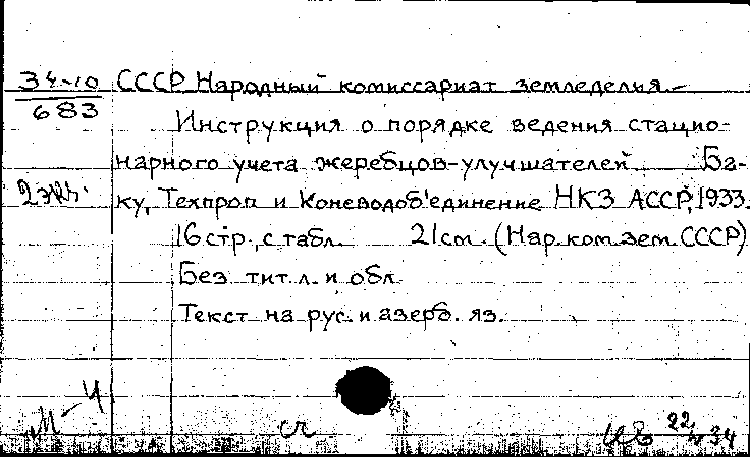 34-10 СССР Народный комиссариат земледелия.-
683
Инструкция о порядке ведения стацио-
нарного учета жеребцов-улучшателей. Ба-
2экз. ку, Техпроп и Коневодоб'единение НКЗ АССР, 1933.
16 стр., с табл. 21 см. (Нар. ком. зем. СССР)
Без тит. л. и обл.
Текст на рус. и азерб. яз.
М-4
22 34